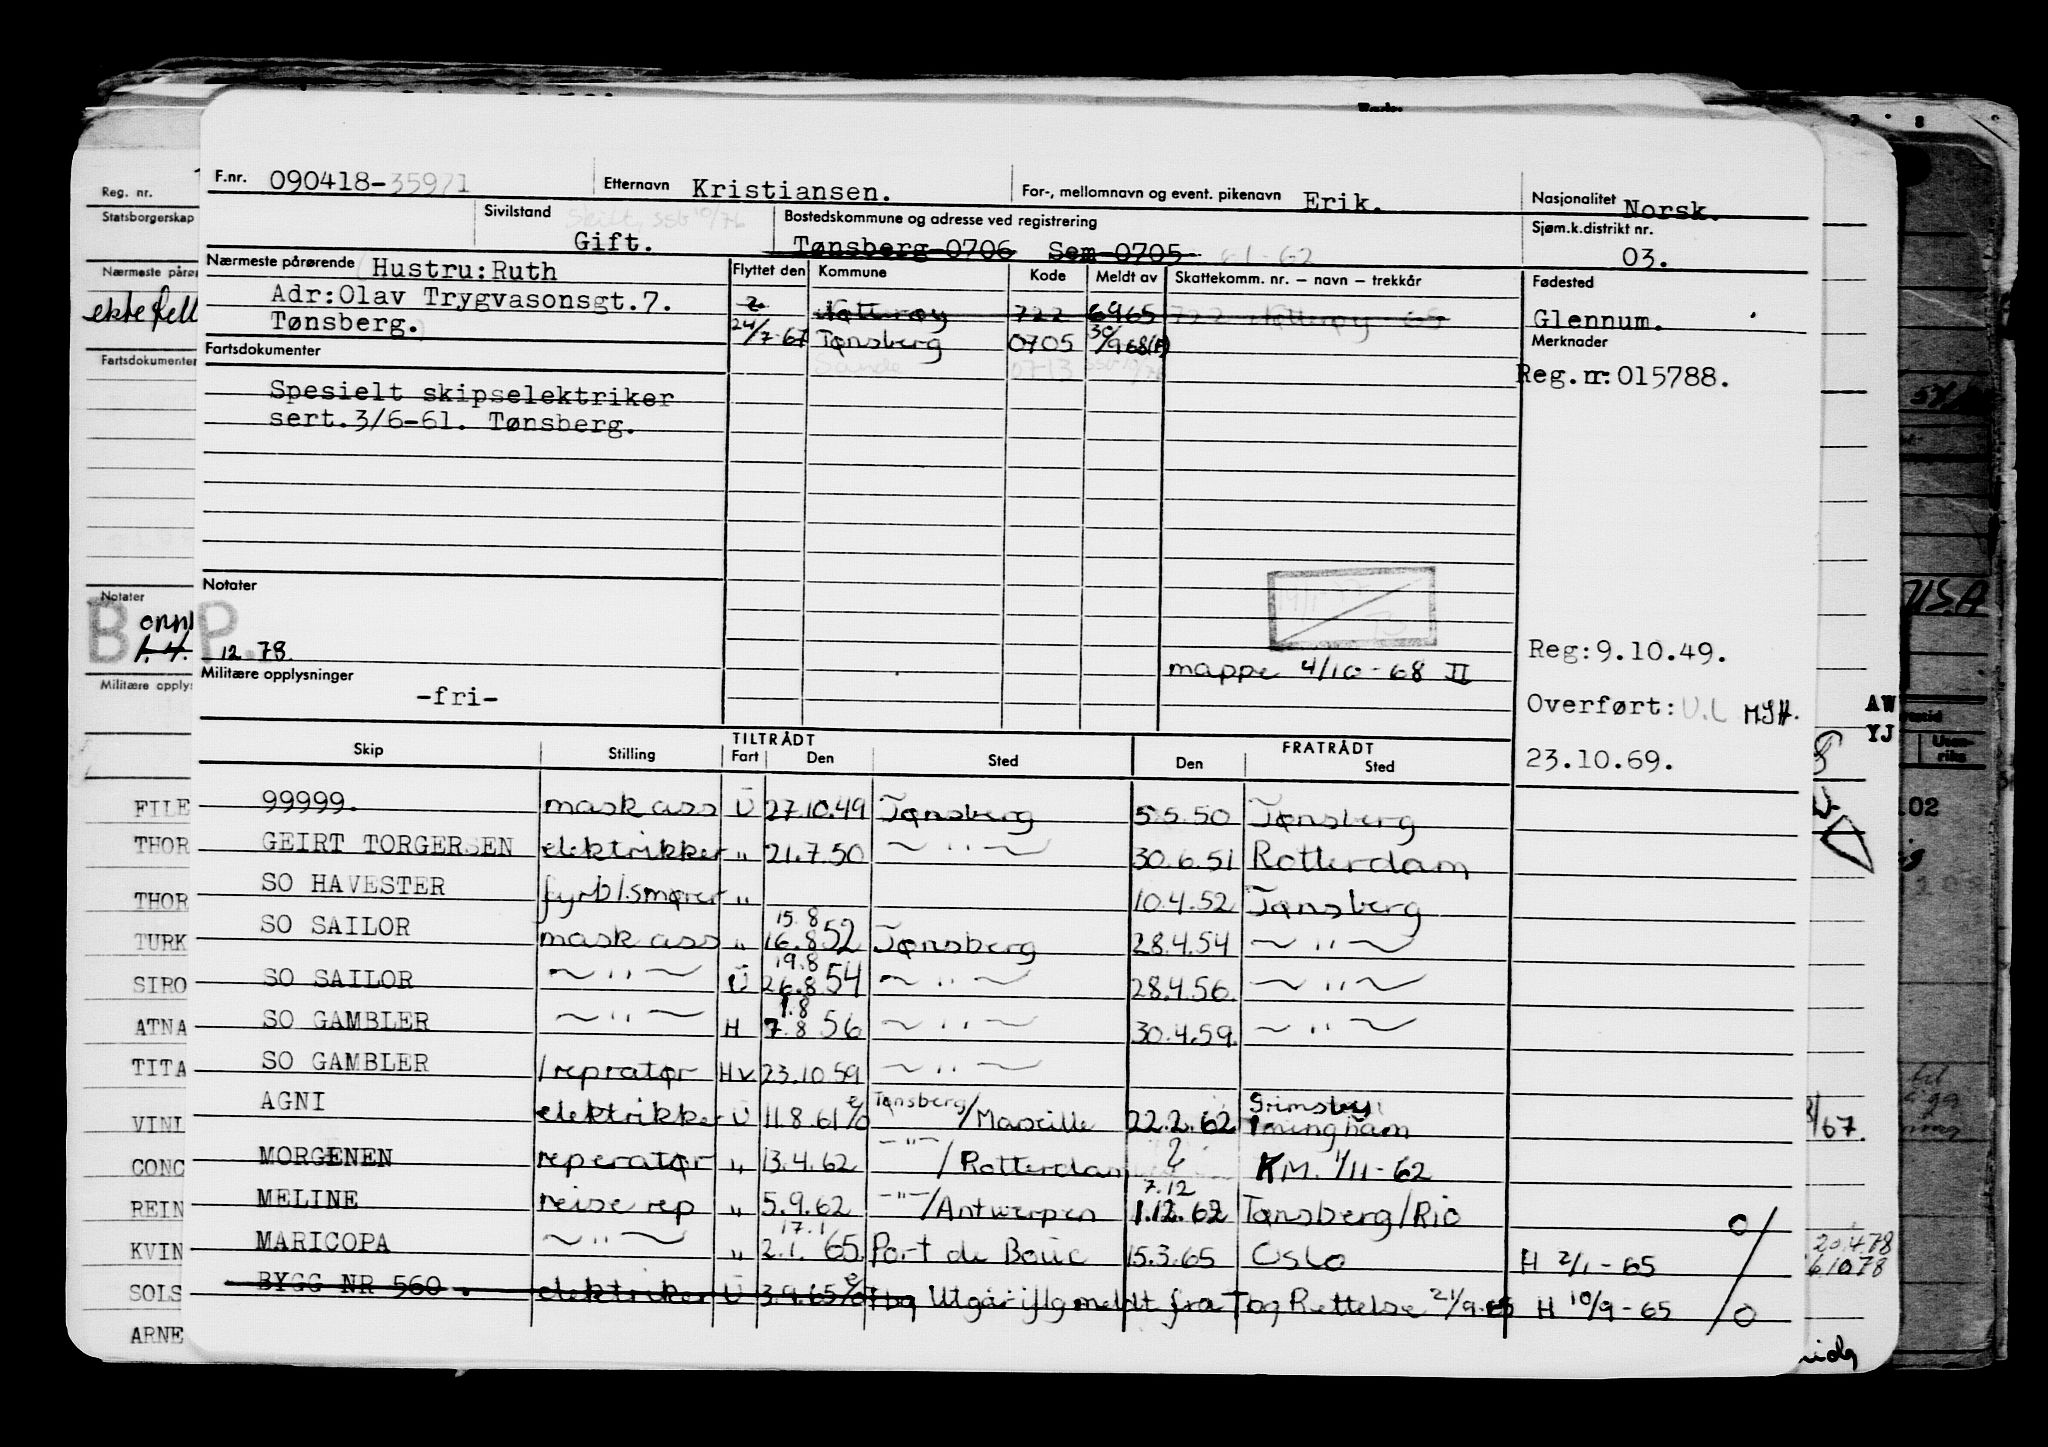 F.nr. 090418-35971 Etternavn Kristiansen. For-, mellomnavn og event. pikenavn Erik. Nasjonalitet Norsk.
Sivilstand Gift. Bostedskommune og adresse ved registrering Sjøm.k.distrikt nr.
Tønsberg 0706 Sem 0705 61-62 03.
Nærmeste pårørende Hustru: Ruth Flyttet den Kommune Kode Meldt av Skattekomm. nr. – navn – trekkår Fødested
Adr: Olav Trygvasonsgt. 7. Nøtterøy 722 6965 722 Nøtterøy 65 Glennum.
Tønsberg. 24/7-67 Tønsberg 0705 30/9 68(A) Merknader
Fartsdokumenter Sande 0713 Reg.nr: 015788.
Spesielt skipselektriker
sert. 3/6-61. Tønsberg.
Notater
12 78.
mappe 4/10-68 II Reg: 9.10.49.
Militære opplysninger
-fri- Overført: U.L MSH.
23.10.69.
TILTRÅDT FRATRÅDT
Skip Stilling Fart Den Sted Den Sted
99999. mask ass U 27.10.49 Tønsberg 5.5.50 Tønsberg
GEIRT TORGERSEN elektrikker " 21.7.50 ~ " ~ 30.6.51 Rotterdam
SO HAVESTER fyrb/smører " 10.4.52 Tønsberg
15.8
SO SAILOR mask ass " 16.8 52 Tønsberg 28.4.54 ~ " ~
19.8
SO SAILOR ~ " ~ U 26.8 54 ~ " ~ 28.4.56. ~ " ~
1.8
SO GAMBLER ~ " ~ H 7.8 56 ~ " ~ 30.4.59. ~ " ~
SO GAMBLER /repratør Hv 23.10 59 ~ " ~
AGNI elektrikker U 11.8.61 Tønsberg/Marseille 22.2.62 Grimsby/Imingham
MORGENEN reperatør " 13.4.62 -"-/Rotterdam ? KM. 1/11-62
7.12
MELINE reise rep " 5.9.62 -"-/Antwerpen 1.12.62 Tønsberg/Rio 0/
17.1
MARICOPA ~ " ~ " 2.1. 65. Port de Bouc 15.3.65 Oslo H 2/1-65
BYGG NR 560. elektriker U 3.9.65 Tbg Utgår iflg meldt fra Tbg Rettelse 21/9-65 H 10/9-65 /0
Reg. nr.
Statsborgerskap
Nærmeste pårør
ektefell
Fartsdokumenter
Notater
B P.
Militære opplys
FILE
THOR
THOR
TURK
SIRO
ATNA
TITA
VINI
CONC
REIN
KVIN
SOLS
ARNE
USA
AW
YJ
02
/67.
20.4.78
61078